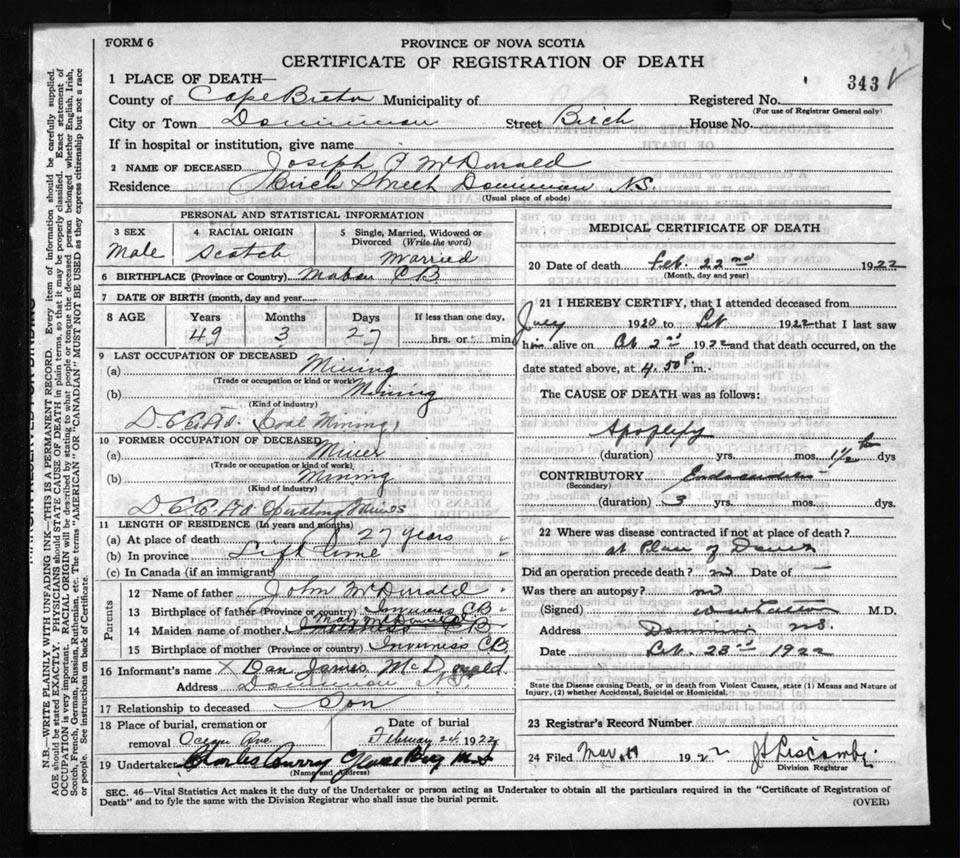 FORM 6
PROVINCE OF NOVA SCOTIA
CERTIFICATE OF REGISTRATION OF DEATH
343
1 PLACE OF DEATH—
County of Cape Breton Municipality of Registered No.
(For use of Registrar General only)
City or Town Dominion Street Birch House No.
If in hospital or institution, give name
2 NAME OF DECEASED Joseph P McDonald
Residence Birch Street Dominion N.S.
(Usual place of abode)
PERSONAL AND STATISTICAL INFORMATION
3 SEX 4 RACIAL ORIGIN 5 Single, Married, Widowed or Divorced (Write the word)
Male Scotch Married
6 BIRTHPLACE (Province or Country) Mabou CB
7 DATE OF BIRTH (month, day and year)
8 AGE Years Months Days If less than one day,
49 3 27 hrs. or min.
9 LAST OCCUPATION OF DECEASED
(a) Mining
(Trade or occupation or kind or work)
(b) Mining
(Kind of industry)
Coal Mining
10 FORMER OCCUPATION OF DECEASED
(a) Miner
(Trade or occupation or kind of work)
(b) Mining
(Kind of industry)
Operating Mines
11 LENGTH OF RESIDENCE (In years and months)
(a) At place of death 27 years
(b) In province Life time
(c) In Canada (if an immigrant)
Parents
12 Name of father John McDonald
13 Birthplace of father (Province or country) Inverness CB
14 Maiden name of mother Mary McDonald
15 Birthplace of mother (Province or country) Inverness CB
16 Informant's name X Dan James McDonald
Address Dominion N.S.
17 Relationship to deceased Son
18 Place of burial, cremation or removal Date of burial
February 24, 1922
19 Undertaker Charles Curry Glace Bay N S
(Name and Address)
MEDICAL CERTIFICATE OF DEATH
20 Date of death Feb. 22nd 1922
(Month, day and year)
21 I HEREBY CERTIFY, that I attended deceased from
July 1920 to Feb. 1922 that I last saw
him alive on 1922 and that death occurred, on the
date stated above, at 4.50 P. m.
The CAUSE OF DEATH was as follows:
Apoplexy
(duration) yrs. mos. 1½ dys
CONTRIBUTORY Endocarditis
(Secondary)
(duration) 3 yrs. mos. dys.
22 Where was disease contracted if not at place of death?
at Place of Death
Did an operation precede death? no Date of
Was there an autopsy? no
(Signed) M.D.
Address Dominion NS
Date Feb. 23rd 1922
State the Disease causing Death, or in death from Violent Causes, state (1) Means and Nature of
Injury, (2) whether Accidental, Suicidal or Homicidal.
23 Registrar's Record Number
24 Filed Mar. 11 1922 J. Liscombe
Division Registrar
SEC. 46—Vital Statistics Act makes it the duty of the Undertaker or person acting as Undertaker to obtain all the particulars required in the "Certificate of Registration of
Death" and to fyle the same with the Division Registrar who shall issue the burial permit.
(OVER)
N.B.—WRITE PLAINLY WITH UNFADING INK—THIS IS A PERMANENT RECORD. Every item of information should be carefully supplied.
AGE should be stated EXACTLY. PHYSICIANS should STATE CAUSE OF DEATH in plain terms, so that it may be properly classified. Exact statement of
OCCUPATION is very important. RACIAL ORIGIN will be described by stating to what people or tongue the deceased person belonged whether English, Irish,
Scotch, French, German, Russian, Ruthenian, etc. The terms "AMERICAN" OR "CANADIAN" MUST NOT BE USED as they express citizenship but not a race
or people. See instructions on back of Certificate.